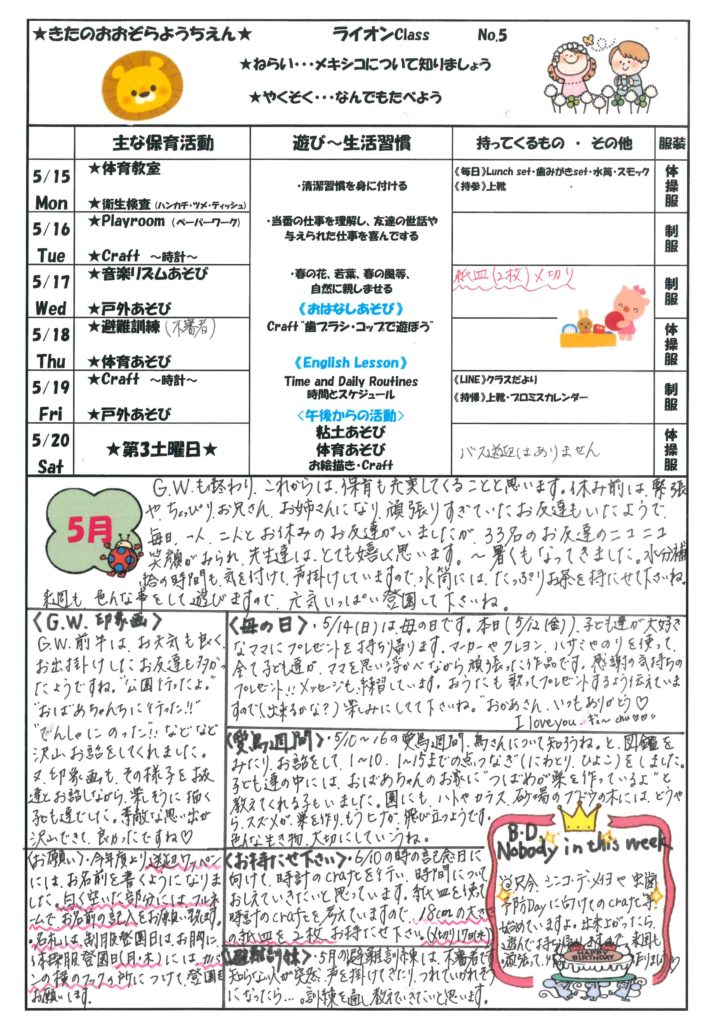 ★きたのおおぞらようちえん★ ライオンClass No.5
★ねらい・・・メキシコについて知りましょう
★やくそく・・・なんでもたべよう
主な保育活動 遊び～生活習慣 持ってくるもの ・ その他 服装
5/15 Mon
★体育教室
★衛生検査（ハンカチ・ツメ・ティッシュ）
・清潔習慣を身に付ける
《毎日》Lunch set・歯みがきset・水筒・スモック
《持参》上靴
体操服
5/16 Tue
★Playroom （ペーパーワーク）
★Craft ～時計～
・当番の仕事を理解し、友達の世話や
与えられた仕事を喜んでする
制服
5/17 Wed
★音楽リズムあそび
★戸外あそび
・春の花、若葉、春の風等、
自然に親しませる
《おはなしあそび》
紙皿(2枚)〆切り
制服
5/18 Thu
★避難訓練(不審者)
★体育あそび
Craft“歯ブラシ・コップで遊ぼう”
《English Lesson》
体操服
5/19 Fri
★Craft ～時計～
★戸外あそび
Time and Daily Routines
時間とスケジュール
<午後からの活動>
《LINE》クラスだより
《持帰》上靴・プロミスカレンダー
制服
5/20 Sat
★第3土曜日★
粘土あそび
体育あそび
お絵描き・Craft
バス送迎はありません
体操服
5月
G.W.も終わり、これからは、保育も充実してくることと思います。休み前は、緊張
や、ちょっぴりお兄さん、お姉さんになり、頑張りすぎていたお友達もいたようで、
毎日、一人、二人とお休みのお友達がいましたが、33名のお友達のニコニコ
笑顔がみられ、先生達は、とても嬉しく思います。～暑くもなってきました。水分補
給の時間も、気を付けて、声掛けしていますので、水筒には、たっぷりお茶を持たせて下さいね。
来週も、色んな事をして遊びますので、元気いっぱい登園して下さいね。
〈G.W.印象画〉
G.W.前半は、お天気も良く、
お出掛けしたお友達も多かっ
たようですね。“公園行ったよ。”
“おばあちゃんちに行った!!”
“でんしゃにのった”!! などなど
沢山お話をしてくれました。
又、印象画も、その様子をお友
達とお話しながら、楽しそうに描く
子も達でした。素敵な思い出が
沢山できて、良かったですね♡
〈母の日〉・5/14(日)は母の日です。本日(5/12(金))、子ども達が大好き
なママにプレゼントを持ち帰ります。マーカーやクレヨン、ハサミやのりを使って、
全て子ども達が、ママを思い浮かべながら頑張った作品です。感謝の気持ちの
プレゼント!! メッセージも、練習しています。おうたも歌ってプレゼントするよう伝えていま
すので(出来るかな?)楽しみにしてて下さいね。“おかあさん、いつもありがとう♡
I love you. ぎゅ～ chu♡♡”
〈愛鳥週間〉・5/10～16の愛鳥週間、鳥さんについて知ろうね。と、図鑑を
みたり、お話をして、1～10、1～15までの点つなぎ(にわとり、ひよこ)をしました。
子ども達の中には、おばあちゃんのお家に“つばめが巣を作っているよ”と
教えてくれる子もいました。園にも、ハトやカラス、砂場のブドウの木には、どうや
ら、スズメが、巣を作り、もうヒナが、飛び立つようです。
色んな生き物、大切にしていこうね。
〈お願い〉・今年度より送迎ワッペン
には、お名前を書くようになりま
した。白く空いた部分には、フルネー
ムでお名前の記入をお願い致します。
名札は、制服登園日はお胸に
体操服登園日(月・木)には、カバ
ンの横のフック所につけて、登園を
お願いします。
〈お持たせ下さい〉・6/10の時の記念日に
向けて、時計のcraftを行い、時間について
おしえていきたいと思っています。紙皿を使って
時計のcraftを考えていますので、18cmの大きさ
の紙皿を2枚、お持たせ下さい。(〆切り17日(水))
〈避難訓練〉・5月の避難訓練は、不審者です。
知らない人が突然、声を掛けてきたり、つれていかれそう
になったら…。訓練を通し教えていきたいと思います。
B.D.
Nobody in this week
◎只今、シンコ・デ・マヨや虫歯
予防Dayに向けてのcraftを
始めていますよ。出来上がったら、
遊んで持ち帰りますね。来週も
頑張って
HAPPY BIRTHDAY